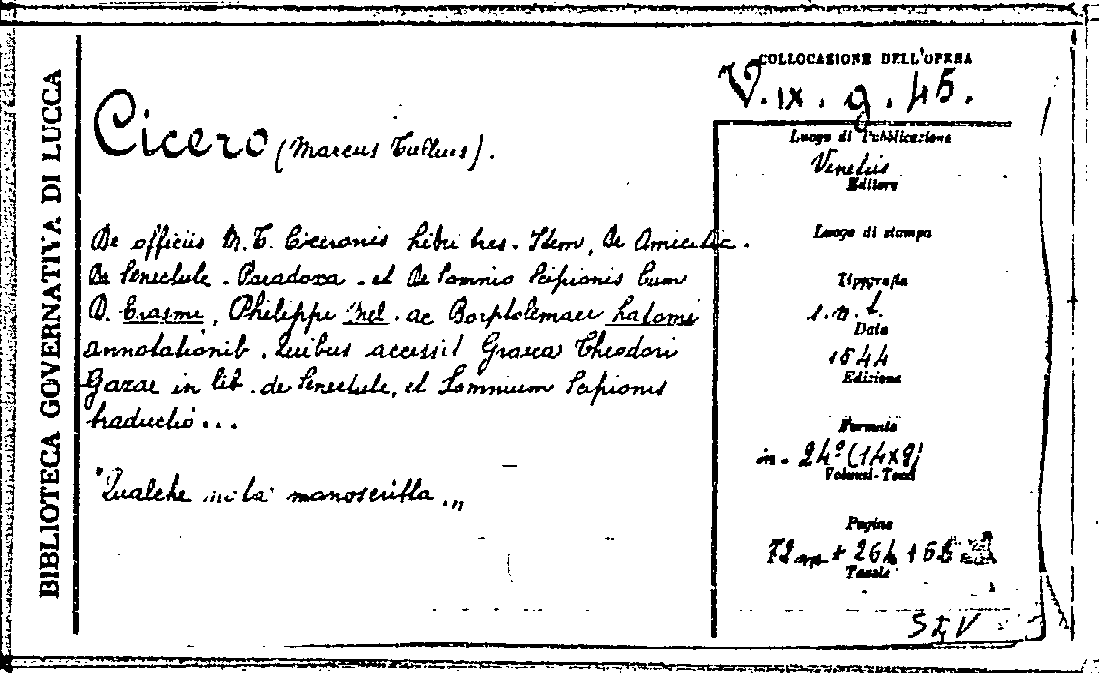 BIBLIOTECA GOVERNATIVA DI LUCCA
COLLOCAZIONE DELL'OPERA
V. IX. g. 45.
Cicero (Marcus Tullius).
Luogo di Pubblicazione
Venetiis
Editore
De officiis M. T. Ciceronis libri tres. Item, De Amicitia.
De Senectute. Paradoxa. et De Somnio Scipionis Cum
D. Erasmi, Philippi Mel. ac Barptolemaei Latomi
annotationib. Quibus accessit Graeca Theodori
Gazae in lib. de Senectute, et Somnium Scipionis
traductio...
"Qualche nota manoscritta."
Luogo di stampa
Tipografia
s.n.t.
Data
1544
Edizione
Formato
in. 24° (14x9)
Volumi-Tomi
Pagine
72 nn + 264 + 
Tavole